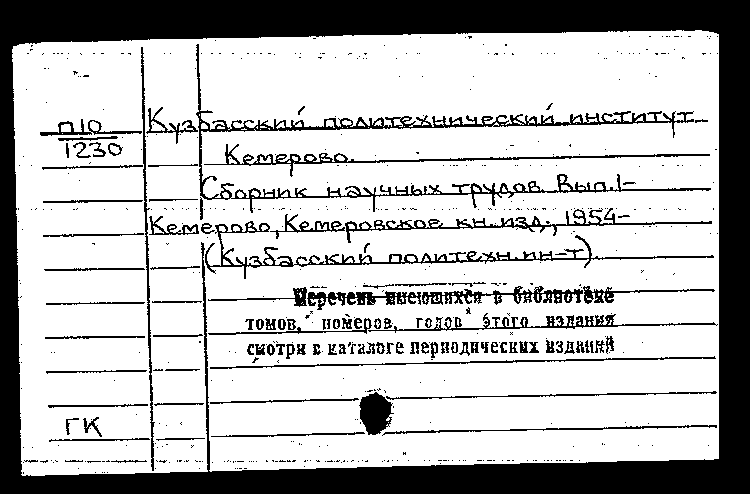 П10 Кузбасский политехнический институт
1230 Кемерово.
Сборник научных трудов. Вып. 1-
Кемерово, Кемеровское кн. изд., 1954-
(Кузбасский политехн. ин-т).
Перечень имеющихся в библиотеке
томов, номеров, годов этого издания
смотри в каталоге периодических изданий
ГК